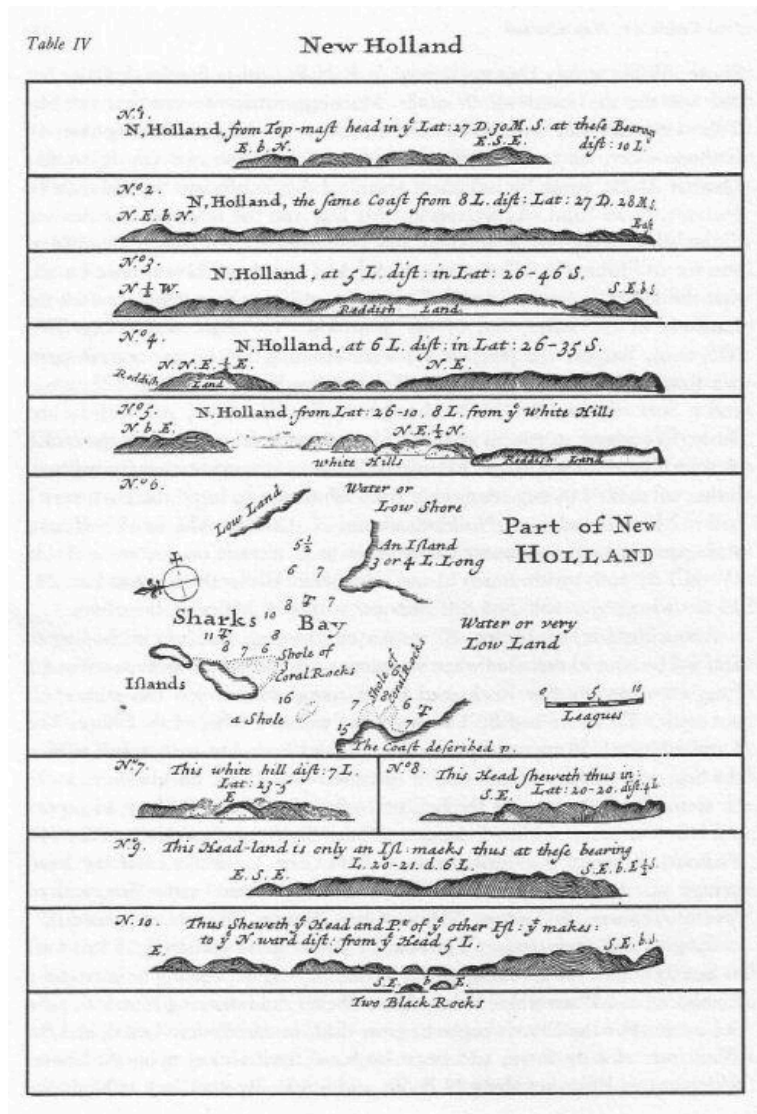 Table IV
New Holland
N.º 1.
N, Holland, from Top-mast head in yᵉ Lat: 27 D. 30 M. S. at these Bearon
E. b. N. E. S. E. dist: 10 L.
N.º 2. N, Holland, the same Coast from 8 L. dist: Lat: 27 D. 28 M s.
N. E. b. N. East
N.º 3. N, Holland, at 5 L. dist: in Lat: 26-46 S.
N ¼ W. S. E b s
Reddish Land
N.º 4. N, Holland, at 6 L. dist: in Lat: 26-35 S.
N. N. E. ¼ E. N. E.
Reddish Land
N.º 5. N, Holland from Lat: 26-10. 8 L. from yᵉ White Hills
N. b E. N. E. ¼ N.
White Hills Reddish Land
N.º 6.
Low Land
Water or
Low Shore
An Island
3 or 4 L. Long
Part of New
HOLLAND
5½
6 7
7
8 T 7
10 8
Sharks Bay
11 T
8 7 6
Shole of
Coral Rocks
Islands
13
16
a Shole
Water or very
Low Land
Shole
7
7 8 6 T
15
0 5 10
Leagues
The Coast described p.
N.º 7. This white hill dist: 7 L.
E
N.º 8.
This Head sheweth thus in
S. E. Lat: 20-20. dist: 4 L
N. 9. This Head-land is only an Isl: maeks thus at these bearing
L. 20-21. d. 6 L.
E. S. E. S. E. b. E ½ S.
N. 10. Thus Sheweth yᵉ Head and Pᵗ of yᵉ other Isl: yᵗ makes:
to yᵉ N. ward dist: from yᵉ Head 5 L.
E. S. E. b. S.
S. E. b E.
Two Black Rocks